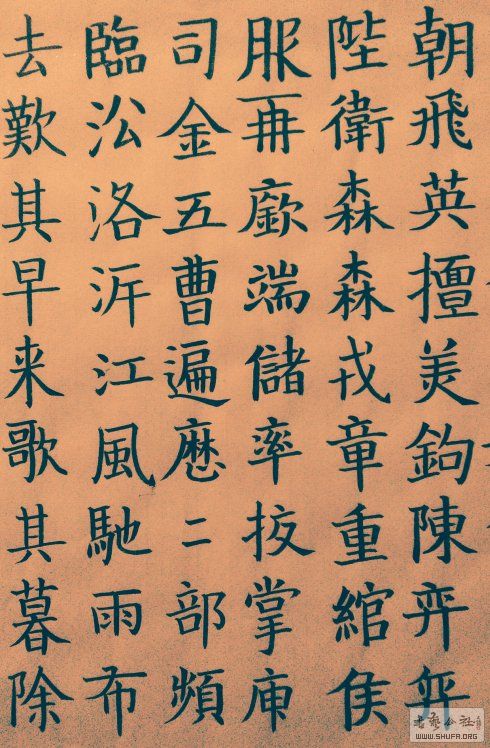 朝飛英擅美鉤陳弈
陛衛森森戎章重綰侯
服再廞端儲率掌
司金五曹遍歷二部頻
臨㳂洛泝江風馳雨布
去歎其早来歌其暮除
古藝公社
WWW.SHUFA.ORG